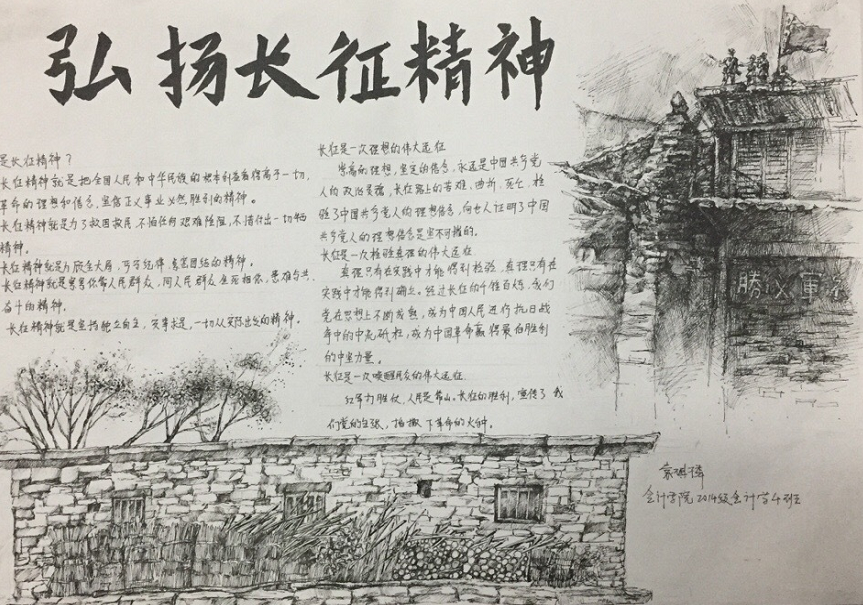 弘扬长征精神
是长征精神？
长征精神就是把全国人民和中华民族的根本利益看得高于一切，
革命的理想和信念，坚信正义事业必然胜利的精神。
长征精神就是为了救国救民，不怕任何艰难险阻，不惜付出一切牺
精神。
长征精神就是顾全大局，严守纪律，紧密团结的精神。
长征精神就是紧紧依靠人民群众，同人民群众生死相依，患难与共，
奋斗的精神。
长征精神就是坚持独立自主，实事求是，一切从实际出发的精神。
长征是一次理想的伟大远征
崇高的理想，坚定的信念，永远是中国共产党
人的政治灵魂，长征路上的苦难、曲折、死亡，检
验了中国共产党人的理想信念，向世人证明了中国
共产党人的理想信念是坚不可摧的。
长征是一次检验真理的伟大远征
真理只有在实践中才能得到检验，真理只有在
实践中才能得到确立。经过长征的千锤百炼，我们
党在思想上不断成熟，成为中国人民进行抗日战
争的中流砥柱，成为中国革命赢得最后胜利
的中坚力量。
长征是一次唤醒民众的伟大远征
红军打胜仗，人民是靠山。长征的胜利，宣传了我
们党的主张，播撒下革命的火种。
勝 軍
会计学院2014级会计学4班